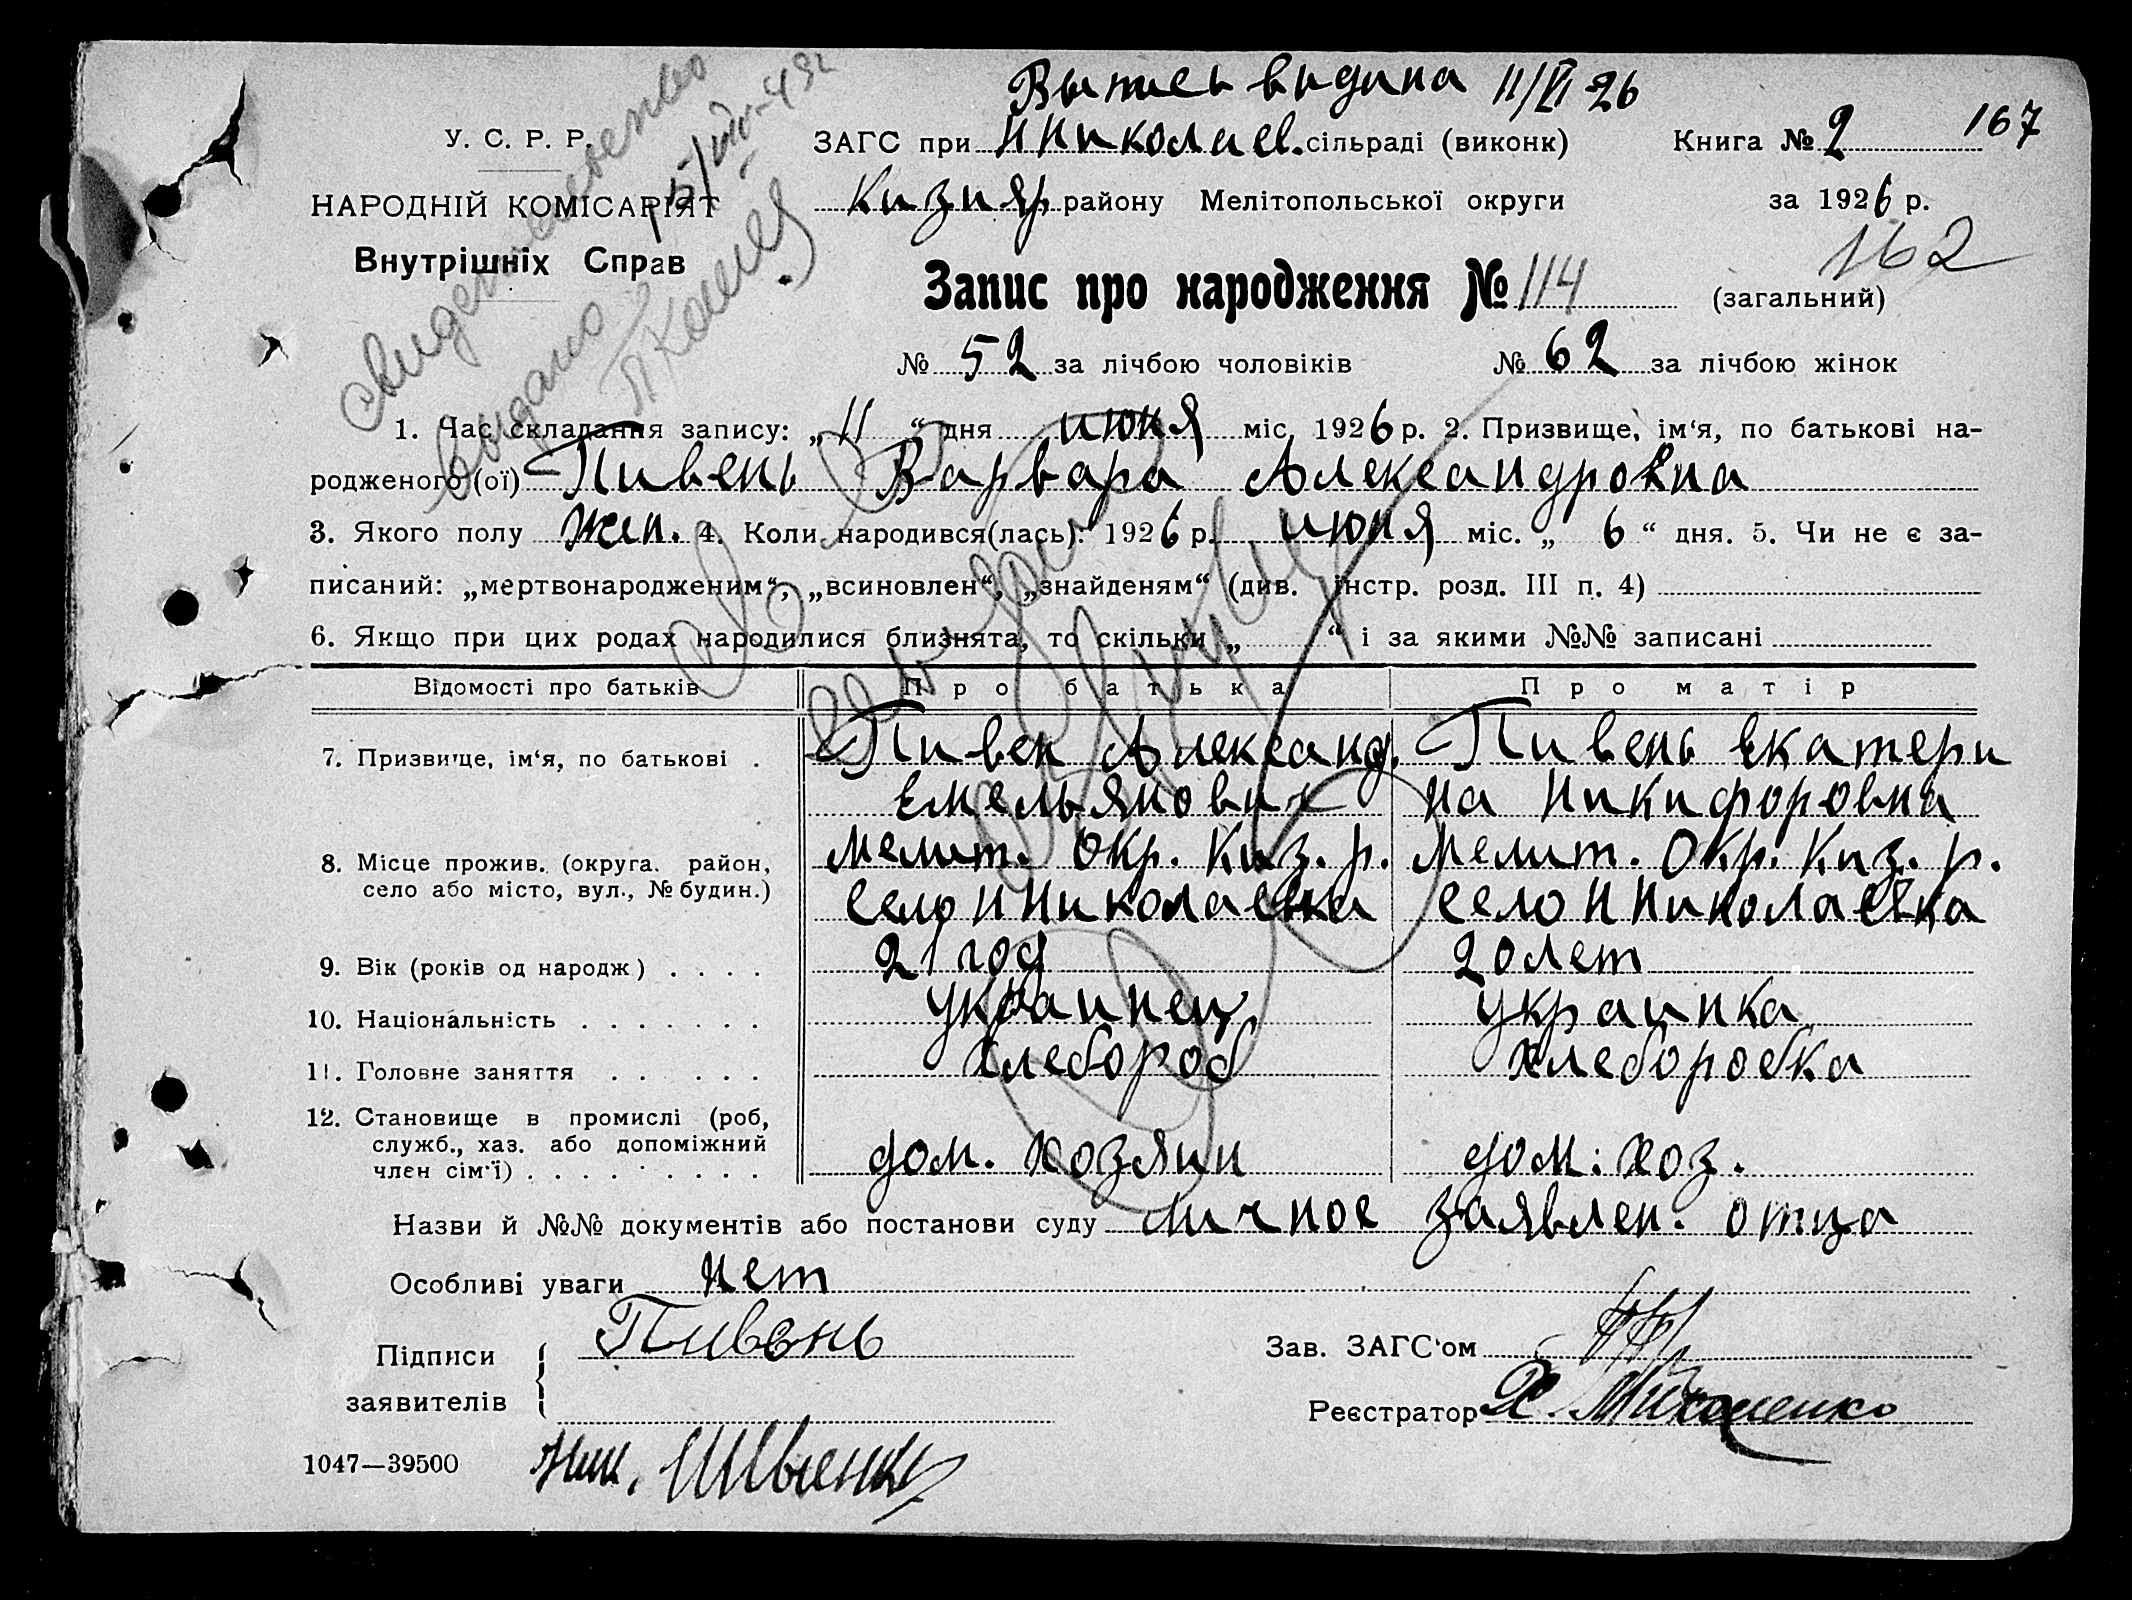 Выпись видина 11/VI 26
У. С. Р. Р.
ЗАГС при Н Николаев. сільраді (виконк)
Книга № 2 167
НАРОДНІЙ КОМІСАРІЯТ
Кизияр району Мелітопольської округи
за 1926 р.
Внутрішніх Справ
162
Запис про народження № 114 (загальний)
свидетельство
выдано
№ 52 за лічбою чоловіків № 62 за лічбою жінок
1. Час складання запису: „ 11 “ дня июня міс. 1926 р. 2. Призвище, ім‘я, по батькові на-
родженого (ої) Пивень Варвара Александровна
3. Якого полу жен. 4. Коли народився(лась): 1926 р. июня міс. „ 6 “ дня. 5. Чи не є за-
писаний: „мертвонародженим“, „всиновлен“, „знайденям“ (див. інстр. розд. III п. 4)
6. Якщо при цих родах народилися близнята, то скільки „ “ і за якими №№ записані
Відомості про батьків Про батька Про матір
7. Призвище, ім‘я, по батькові . Пивен Александ. Пивень Екатери
Емельянович на Никифоровна
8. Місце прожив. (округа. район, Мелит. Окр. Киз. р. Мелит. Окр. Киз. р.
село або місто, вул., № будин.) село Н Николаевка село Н Николаевка
9. Вік (років од народж) . . . . 21 год 20 лет
10. Національність . . . . . . . украинец украинка
11. Головне заняття . . . . . . хлебороб хлеборобка
12. Становище в промислі (роб,
служб., хаз. або допоміжний
член сім‘ї) . . . . . . . . . дом. хозяин дом. хоз.
Назви й №№ документів або постанови суду личное заявлен. отца
Особливі уваги нет
Підписи Пивень
Зав. ЗАГС‘ом
заявителів
Реєстратор
1047—39500